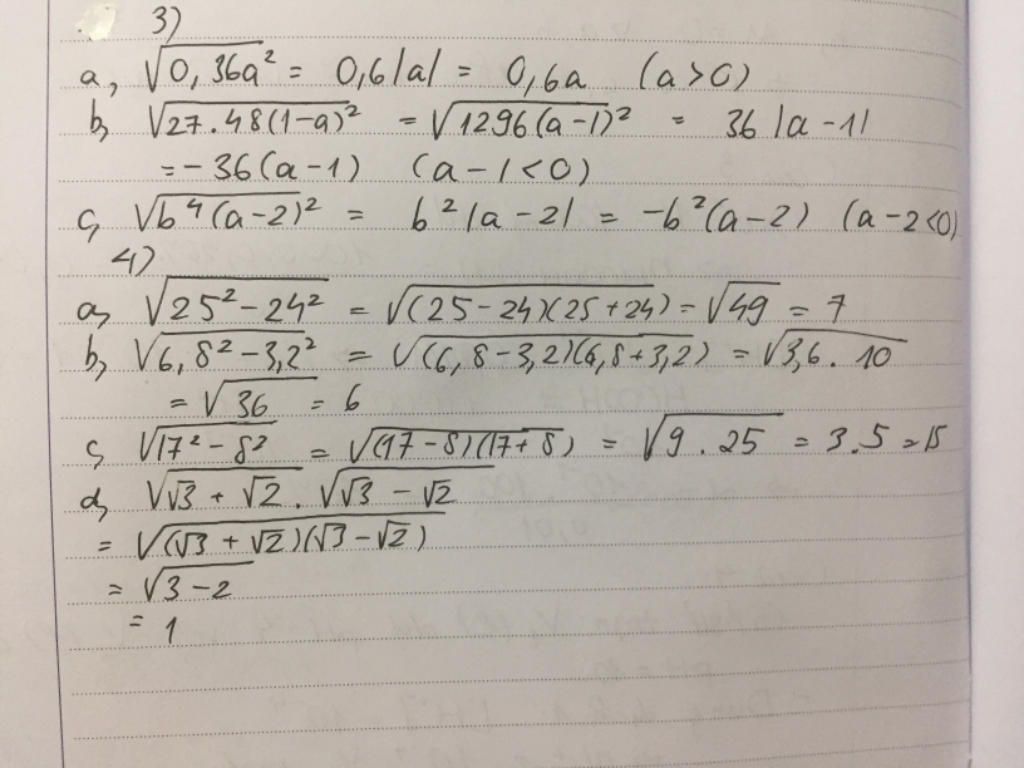 3)
a, √0,36a² = 0,6|a| = 0,6a (a>0)
b, √27.48(1-a)² = √1296(a-1)² = 36|a-1|
=-36(a-1) (a-1<0)
c, √b⁴(a-2)² = b²|a-2| = -b²(a-2) (a-2<0)
4)
a, √25²-24² = √(25-24)(25+24) = √49 = 7
b, √6,8²-3,2² = √(6,8-3,2)(6,8+3,2) = √3,6.10
= √36 = 6
c, √17²-8² = √(17-8)(17+8) = √9.25 = 3.5 = 15
d, √√3+√2.√√3-√2
= √(√3+√2)(√3-√2)
= √3-2
= 1